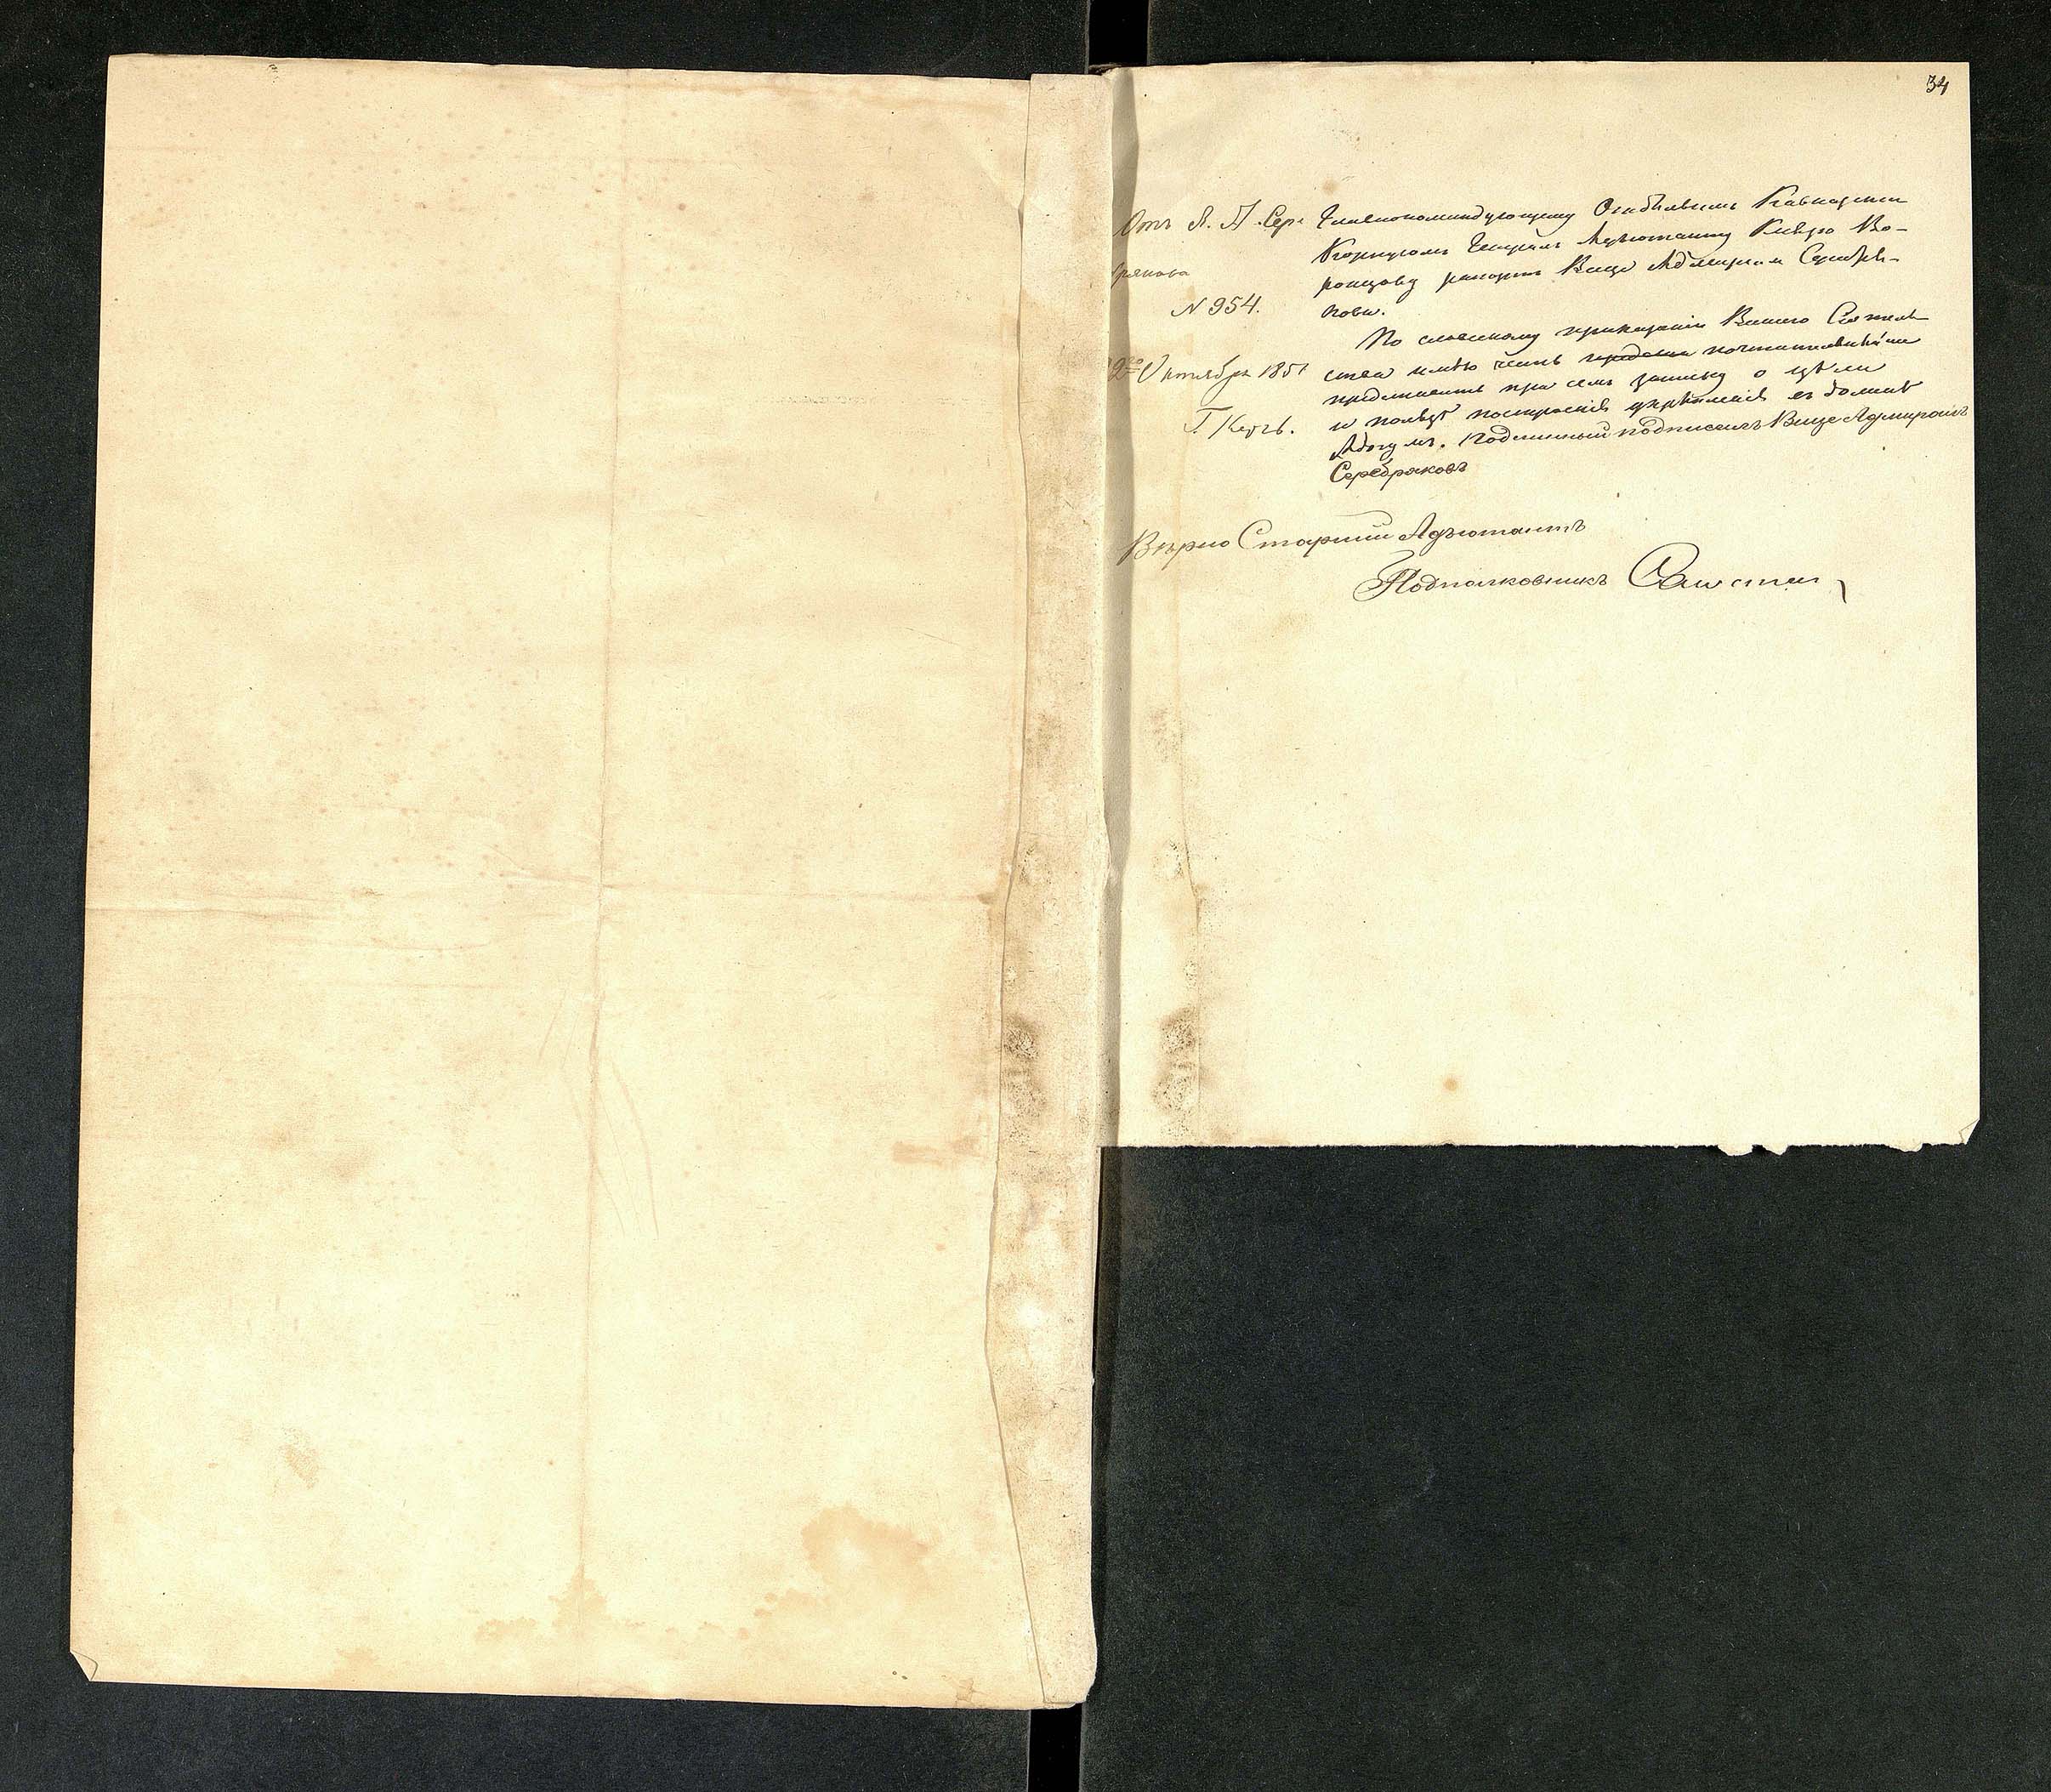 34
Отъ В. А. Сере
брякова
N 954.
22го Октября 1851
Г. Керчь.
Главнокомандующему Отдѣльнымъ Кавказскимъ
Корпусомъ Генералъ Адъютанту Князю Во-
ронцову рапортъ Вице Адмирала Серебря-
кова.
По словесному приказанію Вашего Сіятель
ства имѣю честь почтительнѣйше
представить при семъ записку о цѣли
и пользѣ построенія укрѣпленія въ долинѣ
Адагумъ. Подлинный подписалъ Вице Адмиралъ
Серебряковъ
Вѣрно Старшій Адъютантъ
Подполковникъ